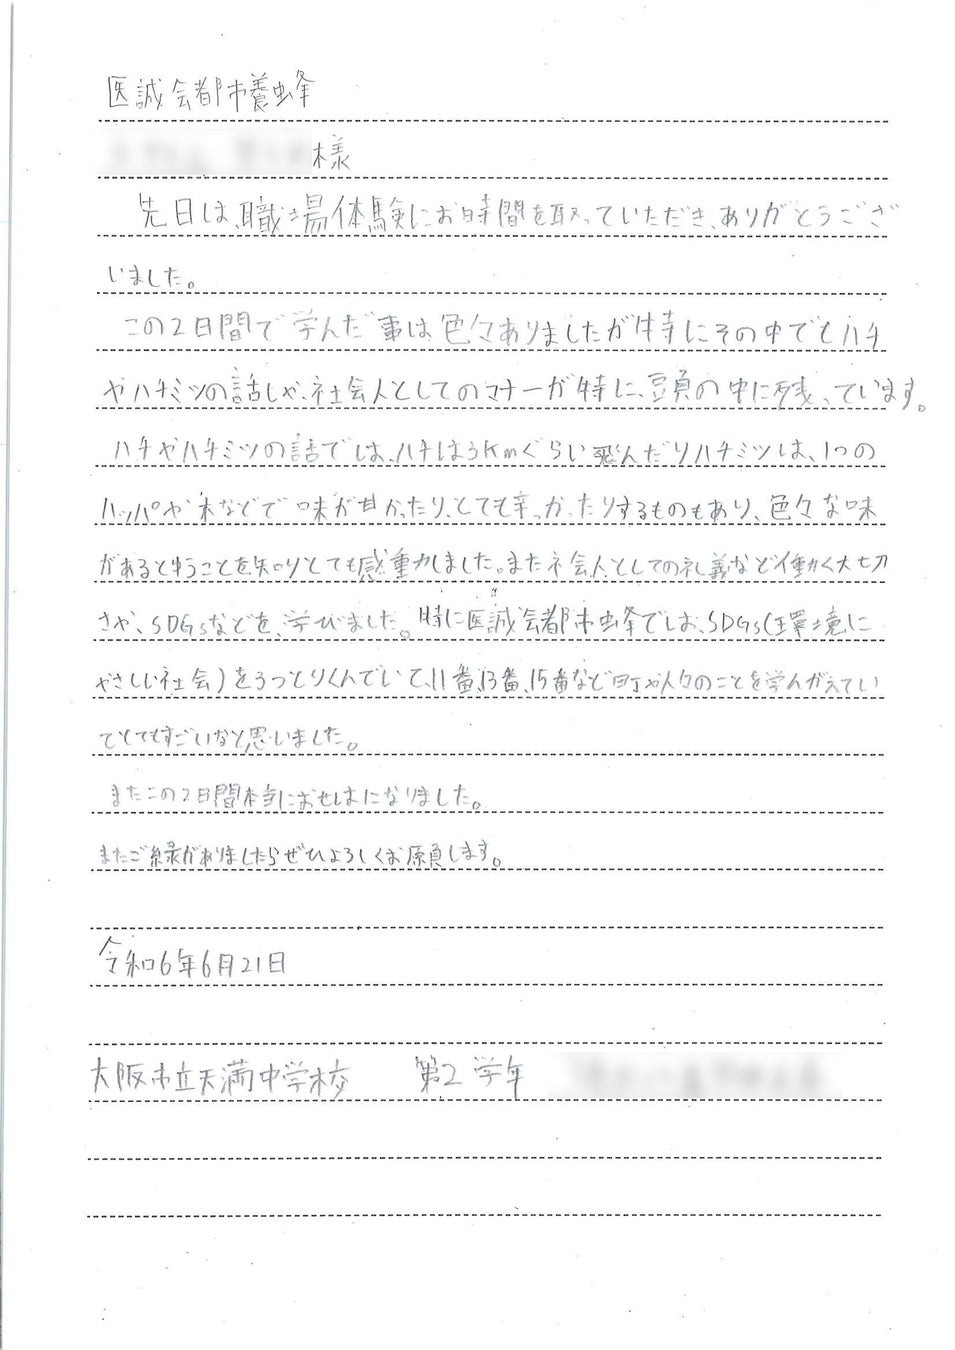 医誠会都市養蜂
様
先日は、職場体験にお時間を取っていただき、ありがとうござ
いました。
この2日間で学んだ事は色々ありましたが特にその中でもハチ
やハチミツの話しや、社会人としてのマナーが特に、頭の中に残っています。
ハチやハチミツの話では、ハチは3kmぐらい飛んだりハチミツは、1つの
ハッパや木などで味が甘かったり、とても辛っかたりするものもあり、色々な味
があるとゆうことを知りとても感動しました。また社会人としての礼義など働く大切
さや、SDGsなどを、学びました。特に医誠会都市蜂では、SDGs(環境に
やさしい社会)をろっとりくんでいて、11番、13番、15番など町や人々のことを学んがえてい
てとてもすごいなと思いました。
またこの2日間本当におせはになりました。
またご縁がありましたらぜひよろしくお願します。
令和6年6月21日
大阪市立天満中学校 第2学年